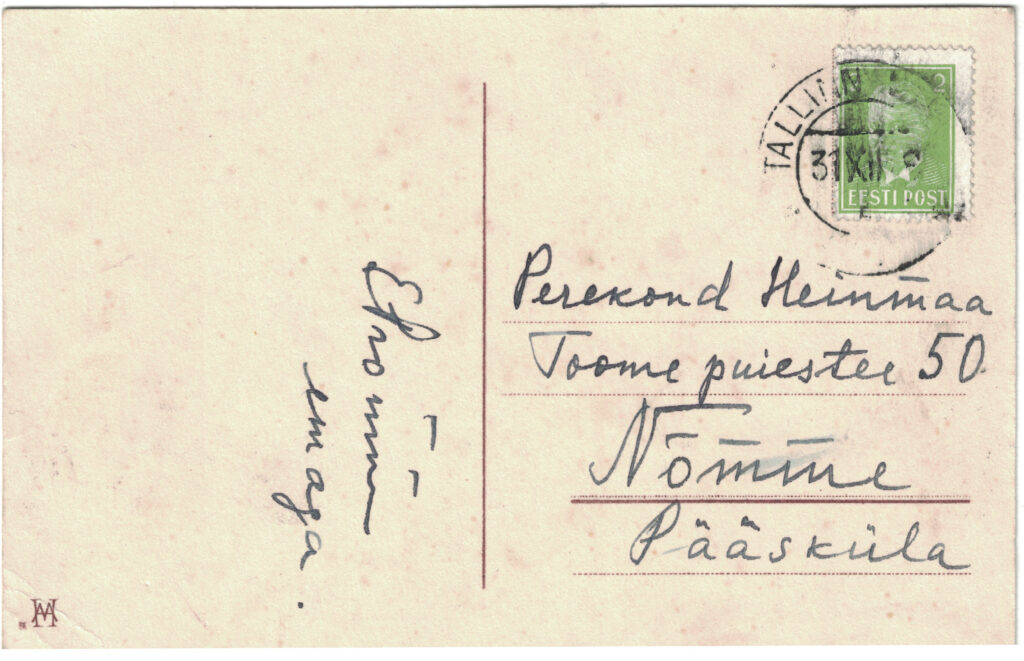 TALLINN
31 XII
2
EESTI POST
Perekond Heinmaa
Toome puiestee 50
Nõmme
Pääsküla
emaga.